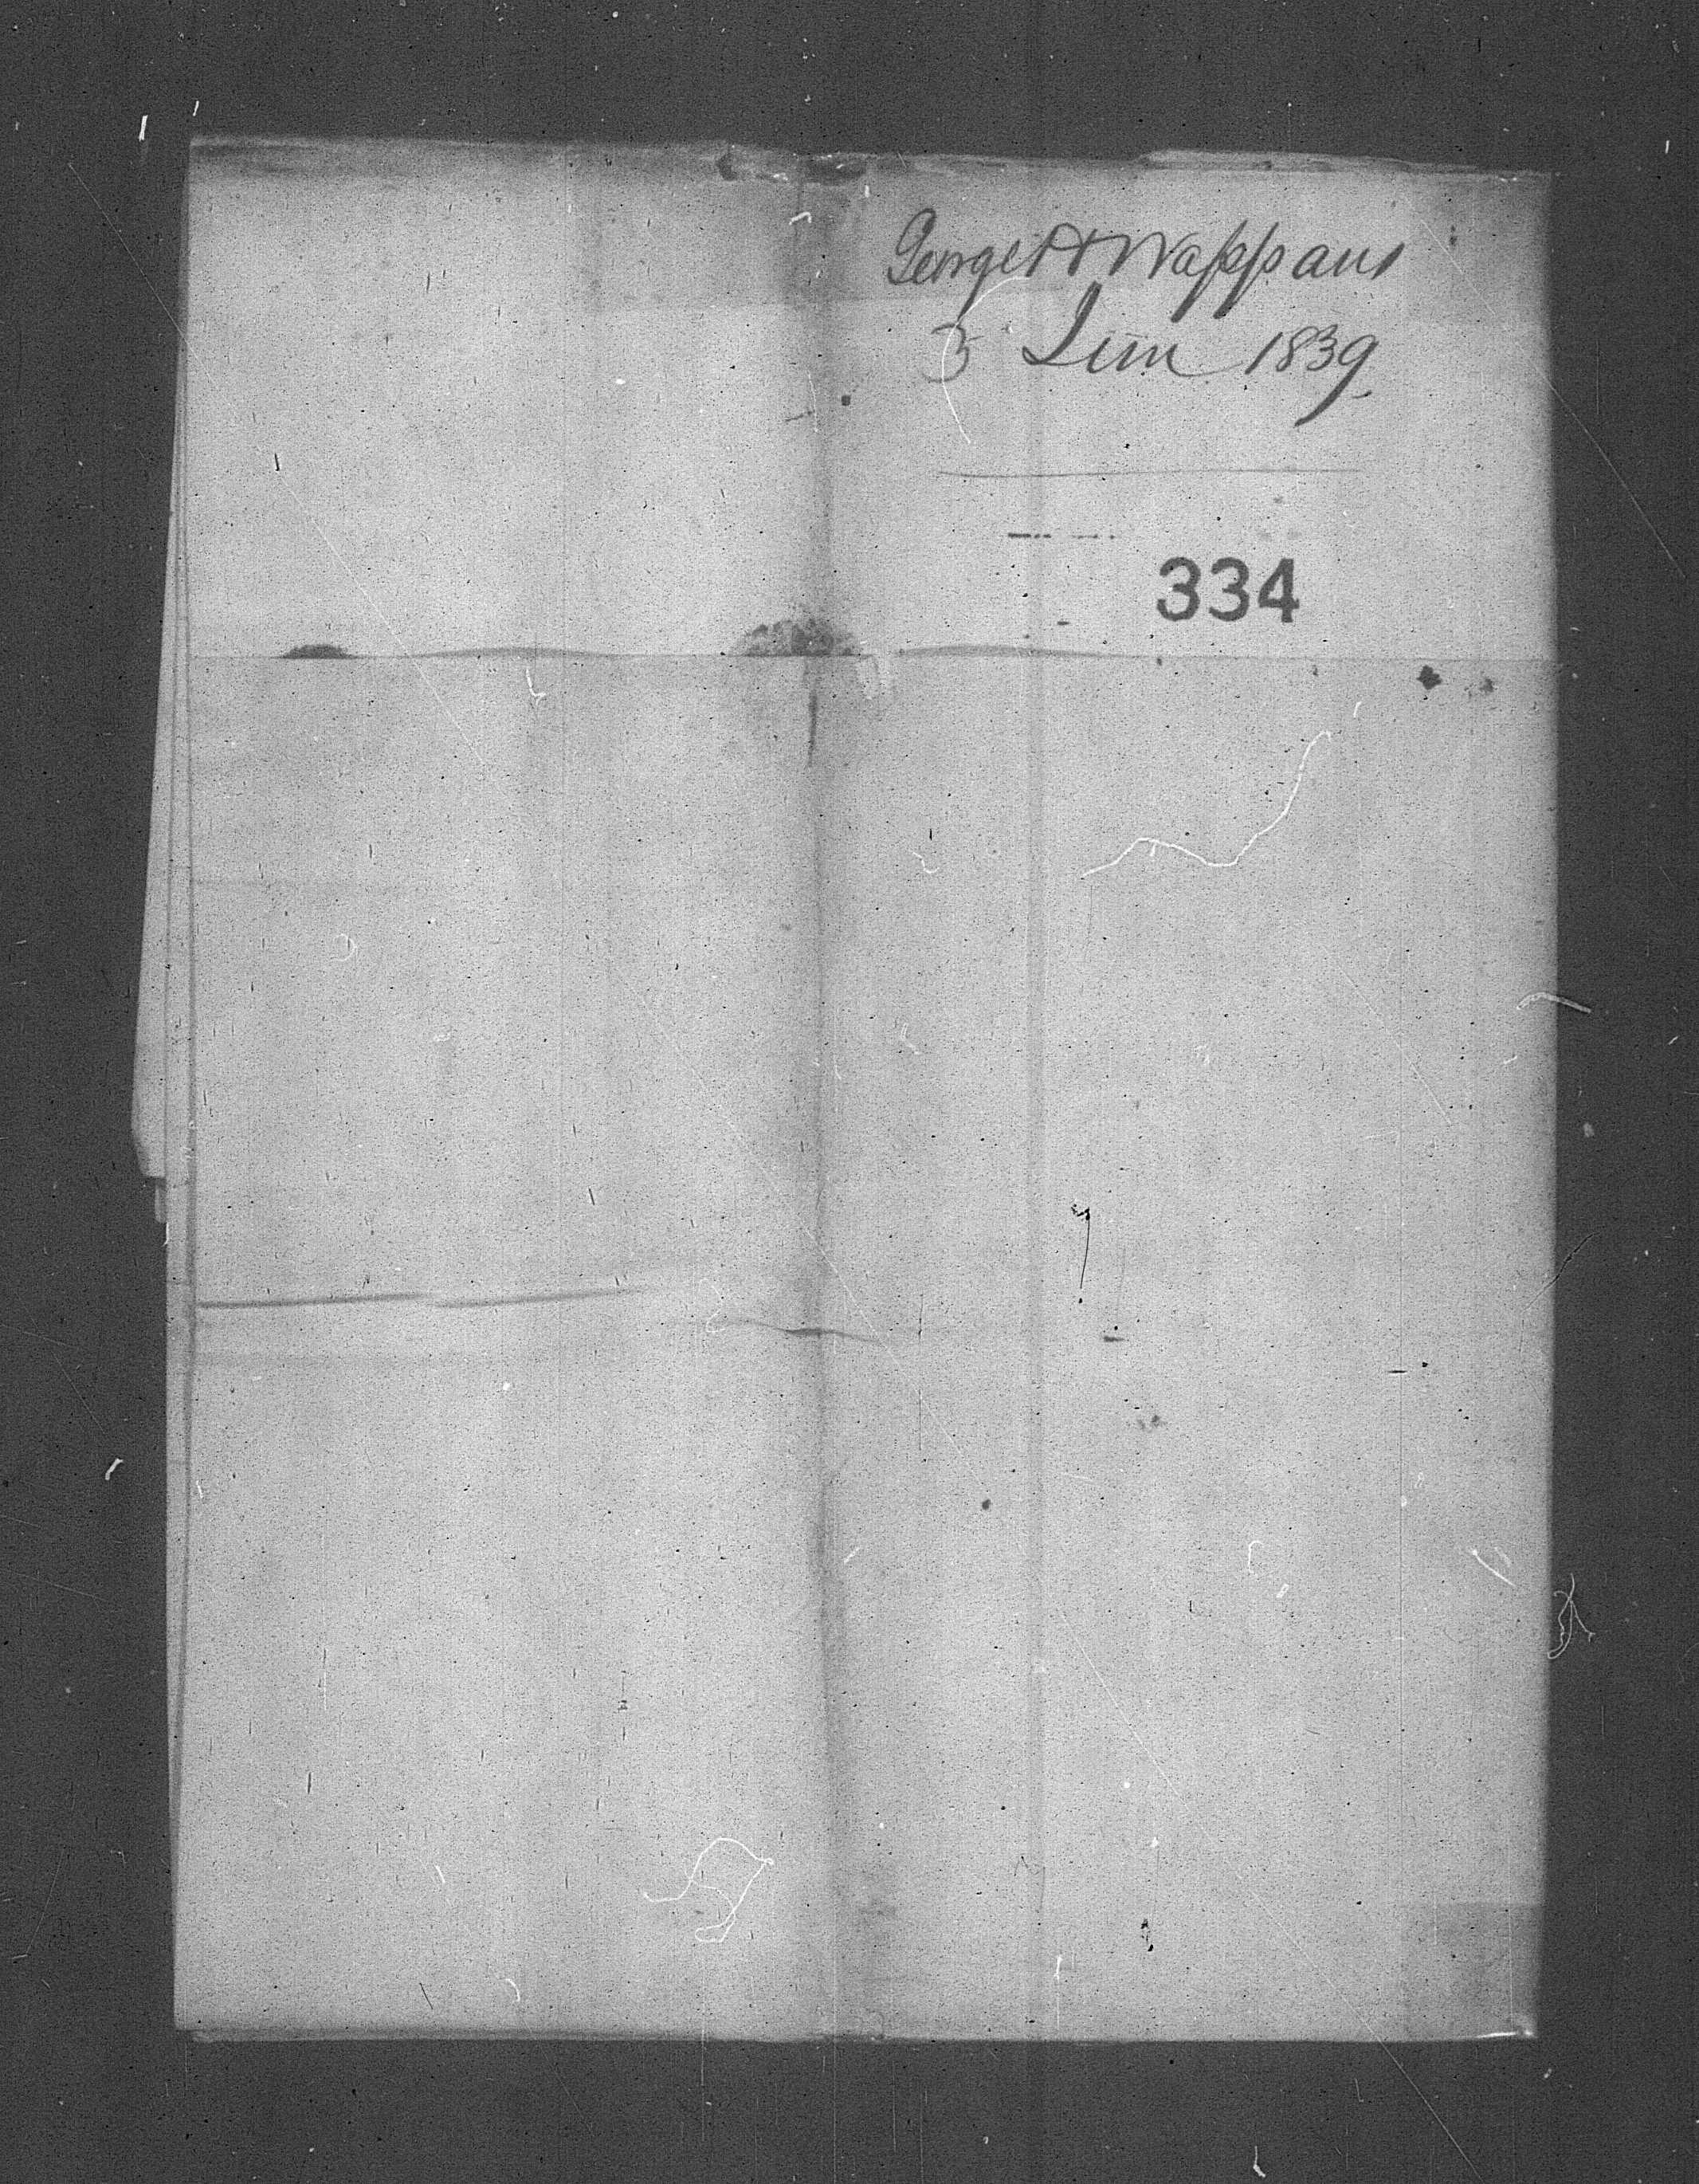 George H Wappaus
3 Jun 1839
334